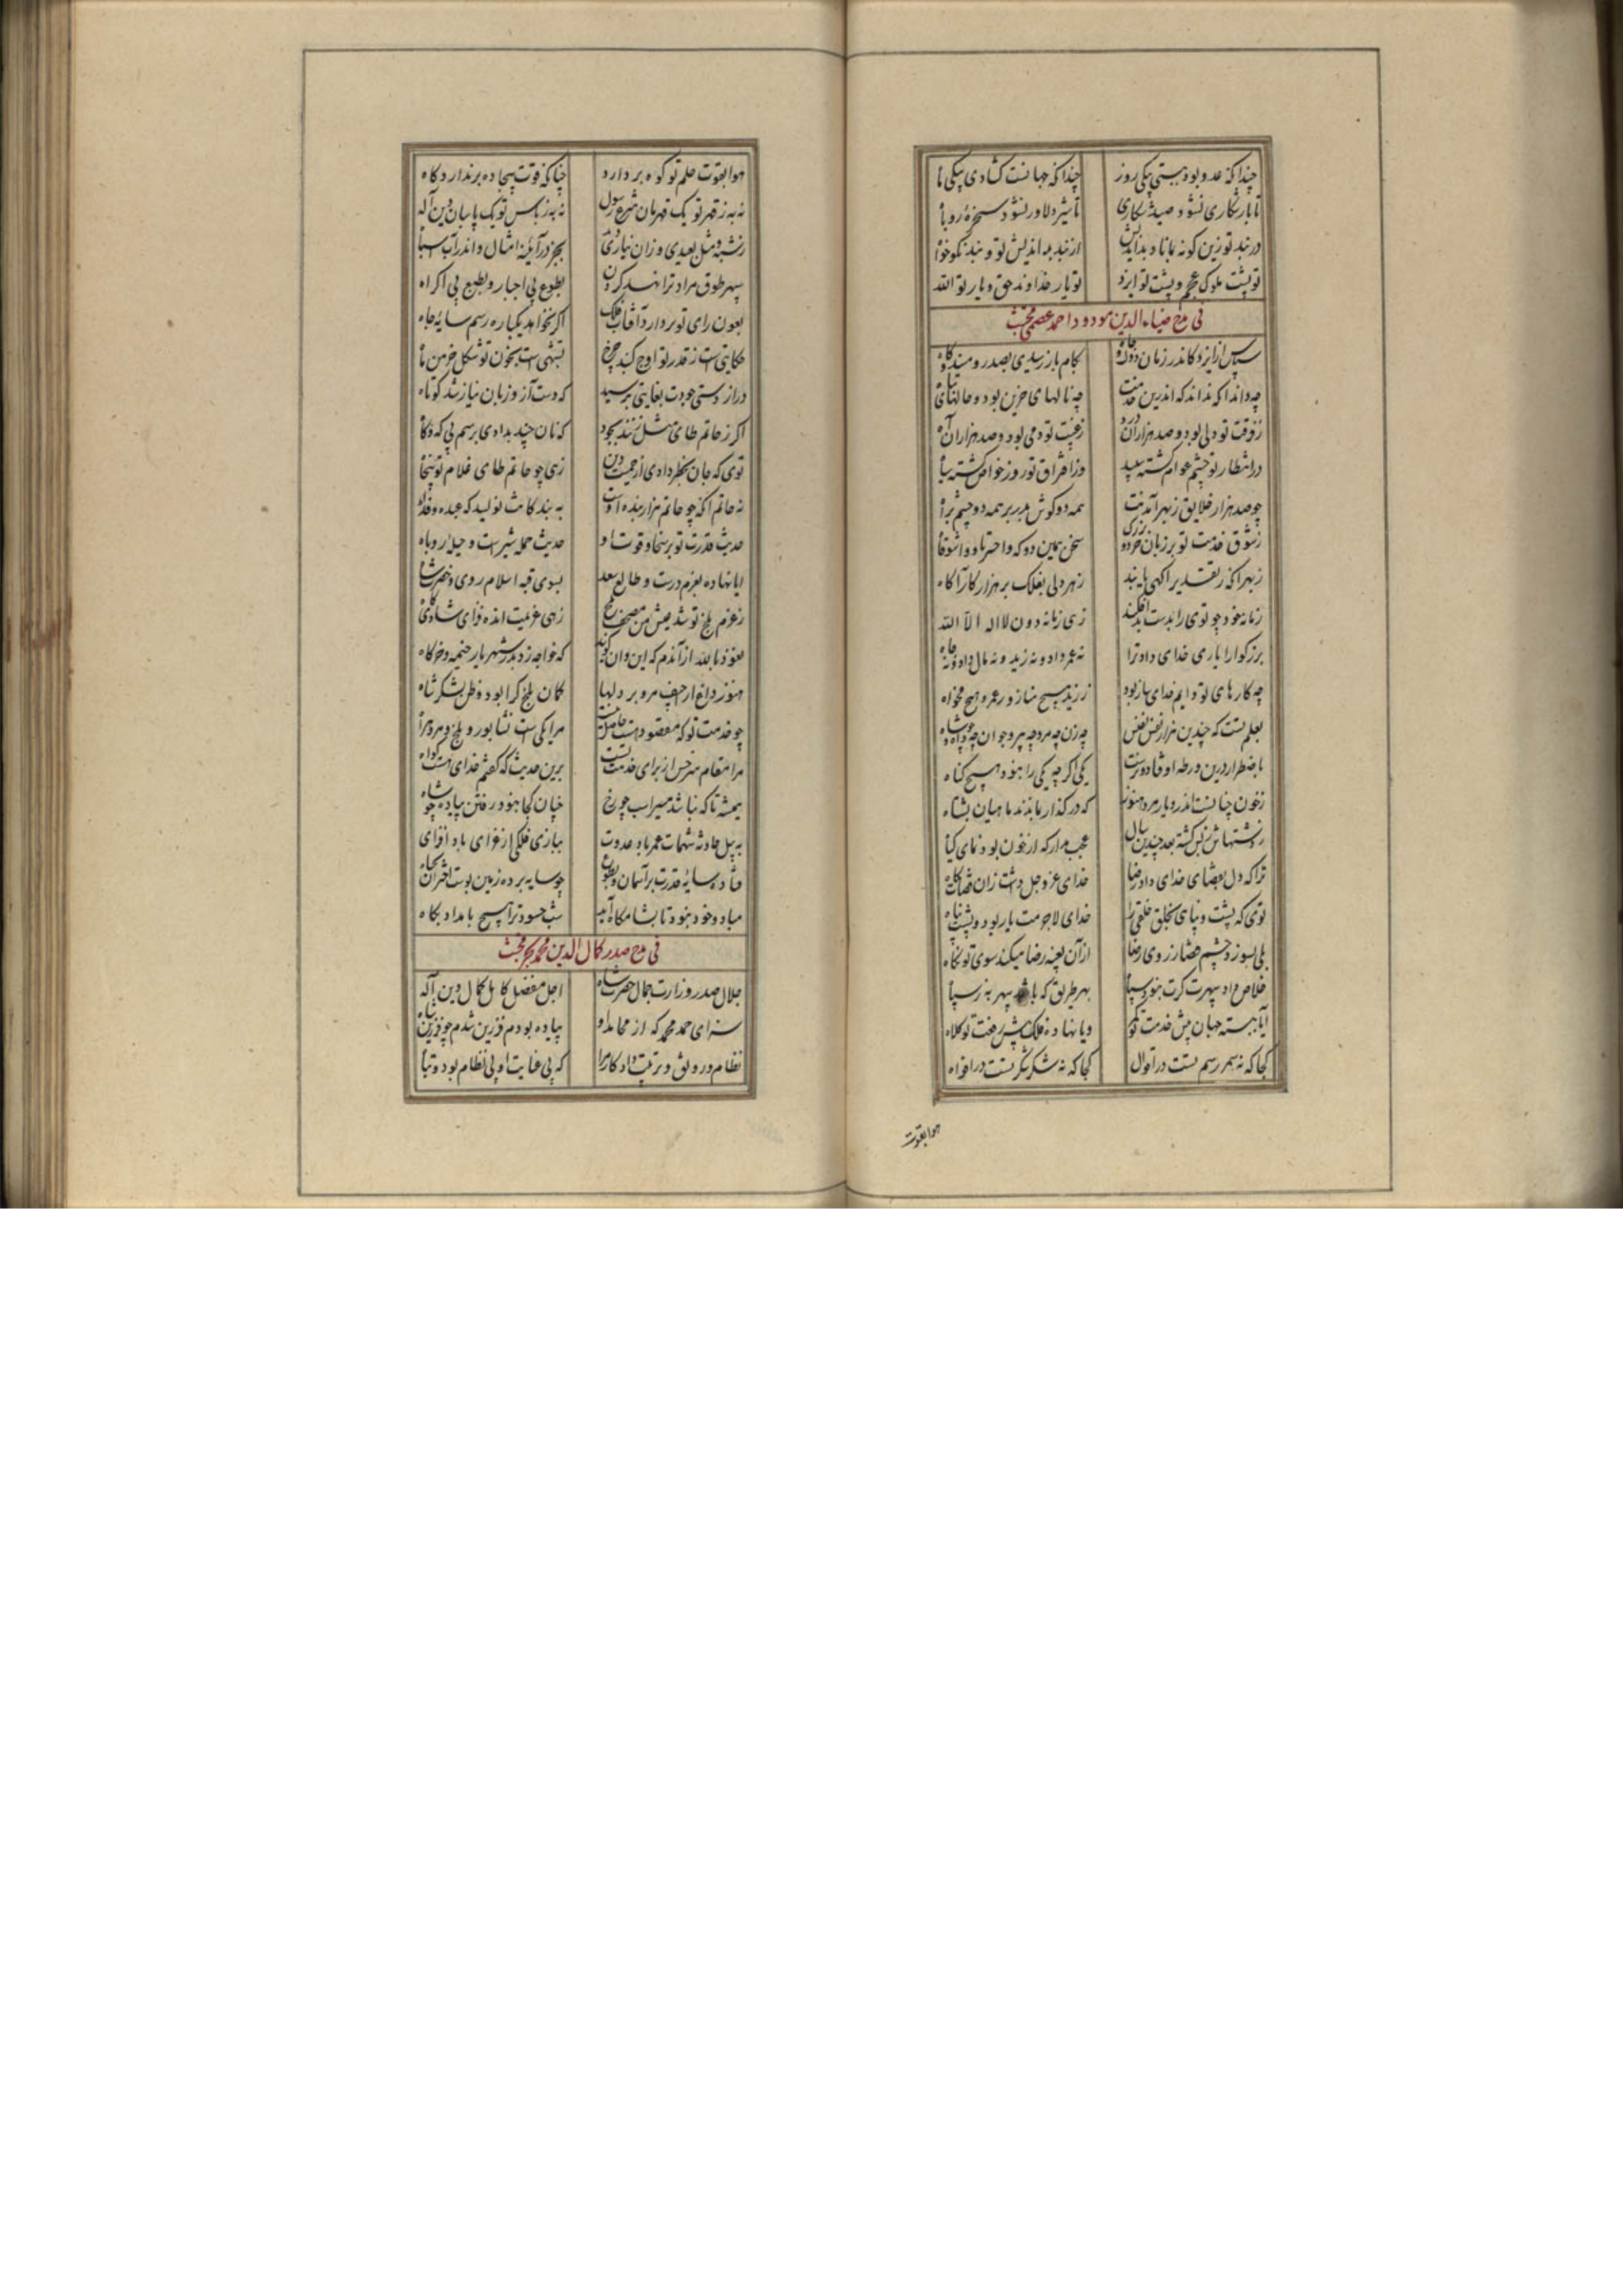 چنداکه عدو بود ببستی بیکی روز چنداکه جهانست کشادی بیکی ماه
تا باز شکاری نشود صید شکاری تا شیر دلاور نشود سخرهٔ روباه
در بند تو زین کونه بماناد بداندیش از بند بداندیش تو و بند نکوخواه
تو پشت ملوک عجم و پشت تو ایزد تو یار خداوند حق و یار تو الله
فی مدح ضیاء الدین مودود احمد عصمی
سپاس ایزد کاندر زمان دولت و جاه بکام باز رسیدی بصدر و مسندگاه
چه داند آنکه نداند که اندرین مدت چه نالهای حزین بود و حالهای تباه
ز فرقت تو دلی بود و صد هزاران درد ز غیبت تو دمی بود و صد هزاران آه
در انتظار تو چشم عوام کشته سپید وز افتراق تو روز خواص کشته سیاه
چو صد هزار خلایق ز بهر آمدنت همه دو کوش بدر بر همه دو چشم براه
ز شوق خدمت تو بر زبان خرد و بزرک سخن همین دو که واحسرتا و واشوقاه
ز بهر آنکه ز تقدیر آکهی یابند ز هر دلی بفلک بر هزار کارآکاه
زمانه خود چو توی را بدست بد فکند زهی زمانه دون لااله الا الله
بزرکوارا باری خدای داد ترا نه عمر داد و نه زید و نه مال داد و نه جاه
چه کارهای تو دایم خدای ساز بود ز زید هیچ مناز و ز عمرو هیچ مخواه
بعلم تست که چندین هزار نفس نفیس چه زن چه مرد چه پیر و جوان چه و چه شاه
باضطرار درین ورطه اوفتادندت یکی اکرچه یکی را نبود هیچ کناه
ز خون چنانست اندر دیار مرو هنوز که در کذار بماندند ماهیان بشناه
ز کشتهاش ز بس کشته بعد چندین سال عجب مدار که از خون بود نمای کیاه
ترا که دل بقضای خدای داد رضا خدای عز و جل داشت زان قضات نکاه
توی که پشت و پناهی بخلق خلقی را خدای لاجرمت یار بود و پشت و پناه
بلی بسوزد چشم قضا ز روی رضا از آن بعینه رضا میکند سوی تو نکاه
خلاص داد سپهرت کرت نبود سپاه بهر طریق که باشد سپهر به ز سپاه
ایا ببسته جهان پیش خدمت تو کمر و یا نهاده فلک پیش رفعت تو کلاه
کجا که نه سمر رسم تست در اقوال کجا که نه شکر شکر تست در افواه
هوا بقوت
هوا بقوت حلم تو کوه بردارد چنانکه قوت بیجاده برندارد کاه
نه به ز قهر تو یک قهرمان شرع رسول نه به ز پاس تو یک پاسبان دین اله
ز شبه و مثل بعیدی وزان نیاری بجز در آینه امثال و اندر آب اشباه
سپهر طوق مراد ترا نهد کردن بطوع بی اجبار و بطبع بی اکراه
بعون رای تو بردارد آفتاب فلک اکر نخواهد یکباره رسم سایه چاه
حکایتی است ز قدر تو اوج کنبد چرخ تشبهی است بخون تو شکل خرمن ماه
دراز دستی جودت بغایتی برسید که دست آز و زبان نیاز شد کوتاه
اکر ز حاتم طای مثل زنند بجود که نان چند بدادی برسم بی که و کاه
توی که جان بخطر دادی از حمیت دین زهی چو حاتم طای غلام تو پنجاه
نه حاتم آنکه چو حاتم هزار بنده اوست به بندکانت نویسد که عبده و فداه
حدیث قدرت تو برسخا و قوت او حدیث حمله شیرست و حیله روباه
ایا نهاده بعزم درست و طالع سعد بسوی قبه اسلام روی و حضرت شاه
ز عزم بلخ تو شد عیش من مصحف بلخ زهی عزیمت انده فزای شادی کاه
نعوذ بالله از آندم که این و آن کویند که خواجه زد بدر شهر بار خیمه و خرکاه
هنوز داغ اراجیف مرو بر دلها کمان بلخ کرا بود و ظن لشکر شاه
چو خدمت تو که مقصود است حاصل نیست مرا یکی است نشابور و بلخ و مرو و هراه
مرا مقام سرخس از برای خدمت تست برین حدیث که کفتم خدای هست کواه
همیشه تا که نباشد مسیر اسب چو رخ چنان کجا نبود رفتن پیاده چو شاه
به پیل حادثه شهمات عمر باد عدوت ببازی فلکی از عزای باد افزای
فتاده سایهٔ قدرت بر آسمان و بطوع چو سایه برده زمین بوست اختران بجباه
مباد و خود نبود تا بشامکاه آبد شب حسود ترا هیچ بامداد پکاه
فی مدح صدر کمال الدین محمد
جلال صدر وزارت جمال حضرت شاه اجل مفضل کامل کمال دین اله
سزای حمد محمد که از محامد او پیاده بودم فرزین شدم چو فرزین
نظام و رونق و ترتیب داد کار مرا که بی عنایت او بی نظام بود و تباه